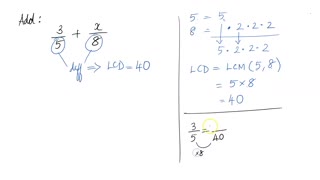 Add:
3/5 + x/8
diff => LCD = 40
5 = 5
8 = 1 · 2 · 2 · 2
5 · 2 · 2 · 2
LCD = LCM (5, 8)
= 5 × 8
= 40
3/5 = /40
×8